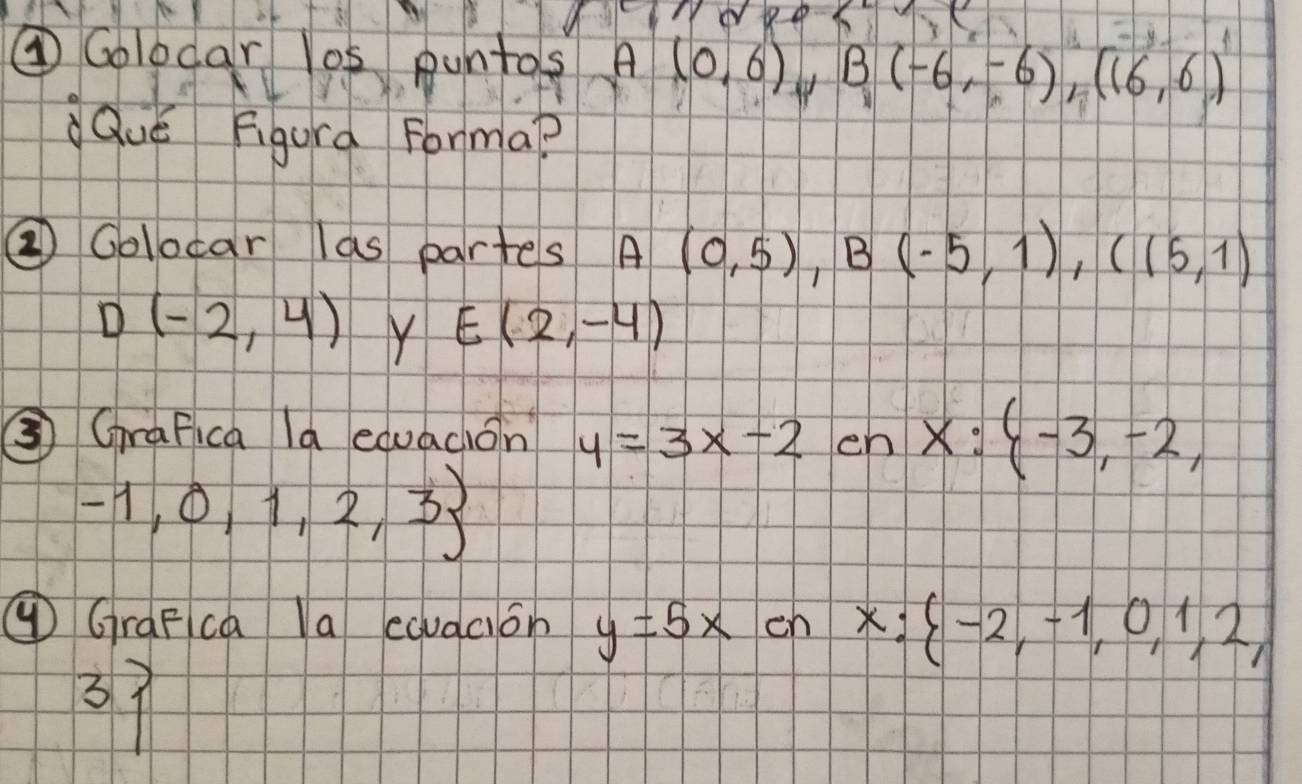 ① Colocar los puntos A (0,6), B (-6,-6), C(6,6)
¿Qué Figura Forma?
② Colocar las partes A (0,5), B (-5,1), C(5,1)
D (-2,4) y E (2,-4)
③ Grafica la ecuación y = 3x - 2 en x: {-3, -2,
-1, 0, 1, 2, 3}
④ Grafica la ecuación y = 5x en x: {-2, -1, 0, 1, 2,
3}